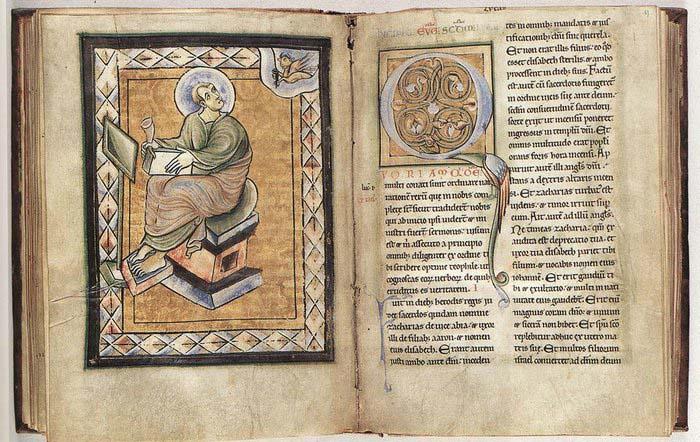 LVCAS
EVG̅. SCD̅M
Q
VONIAM QVIDE
multi conati sunt ordinare nar
rationem reru᷒ que in nobis com
plete s̅t̅ sicut tradider̅ nobis
qui ab inicio ipsi viderr̅ & mi
nistri fuer̅ sermonis: uisum
est & m assecuto a principio
omnib; diligenter ex ordine ti
bi scribere optime theophile ut
cognoscas eor̅ uerbor̅ de quib;
eruditus es ueritatem. I
uit in dieb; herodis regis iu
dee sacerdos quidam nomine
zacharias de uice abia & uxor
illi de filiab; aaron & nomen
eius elisabeth. Erant autem
iusti ambo ante dm̅. inceden
tes in omnib; mandatis & ius
tificationib; dn̅i sine querela.
Et non erat illis filius. eo qd
esset elisabeth sterilis & ambo
processissent in dieb; suis. Factu̅
est aute̅ cu̅ sacerdotio fungeret᷒
in ordine uicis sue ante deum.
secdm̅ consuetudine̅ sacerdotii
sorte exiit ut incensu̅ poneret
ingressus in templu̅ dn̅i. Et
omnis multitudo erat populi
orans foris hora incensi. Ap
paruit aute̅ illi angls̅ dn̅i
stans a dextris altaris incen
si. Et zacharias turbat᷒ est
uidens & timor irruit sup
eum. Ait aute̅ ad illu̅ angls̅.
Ne timeas zacharia: qm̅ ex
audita est deprecatio tua. et
uxor tua elisabeth pariet tibi
filium & uocabis nomen eius
iohannem. Et erit gaudiu̅ ti
bi & exultatio. & multi in nati
uitate eius gaudebt̅. Erit eni̅
magnus coram dn̅o & uinu̅
& sicera̅ non bibet. Et spu̅ sco̅
replebitur adhuc ex utero ma
tris sue. Et multos filiorum
israel conuertet ad dn̅m deum